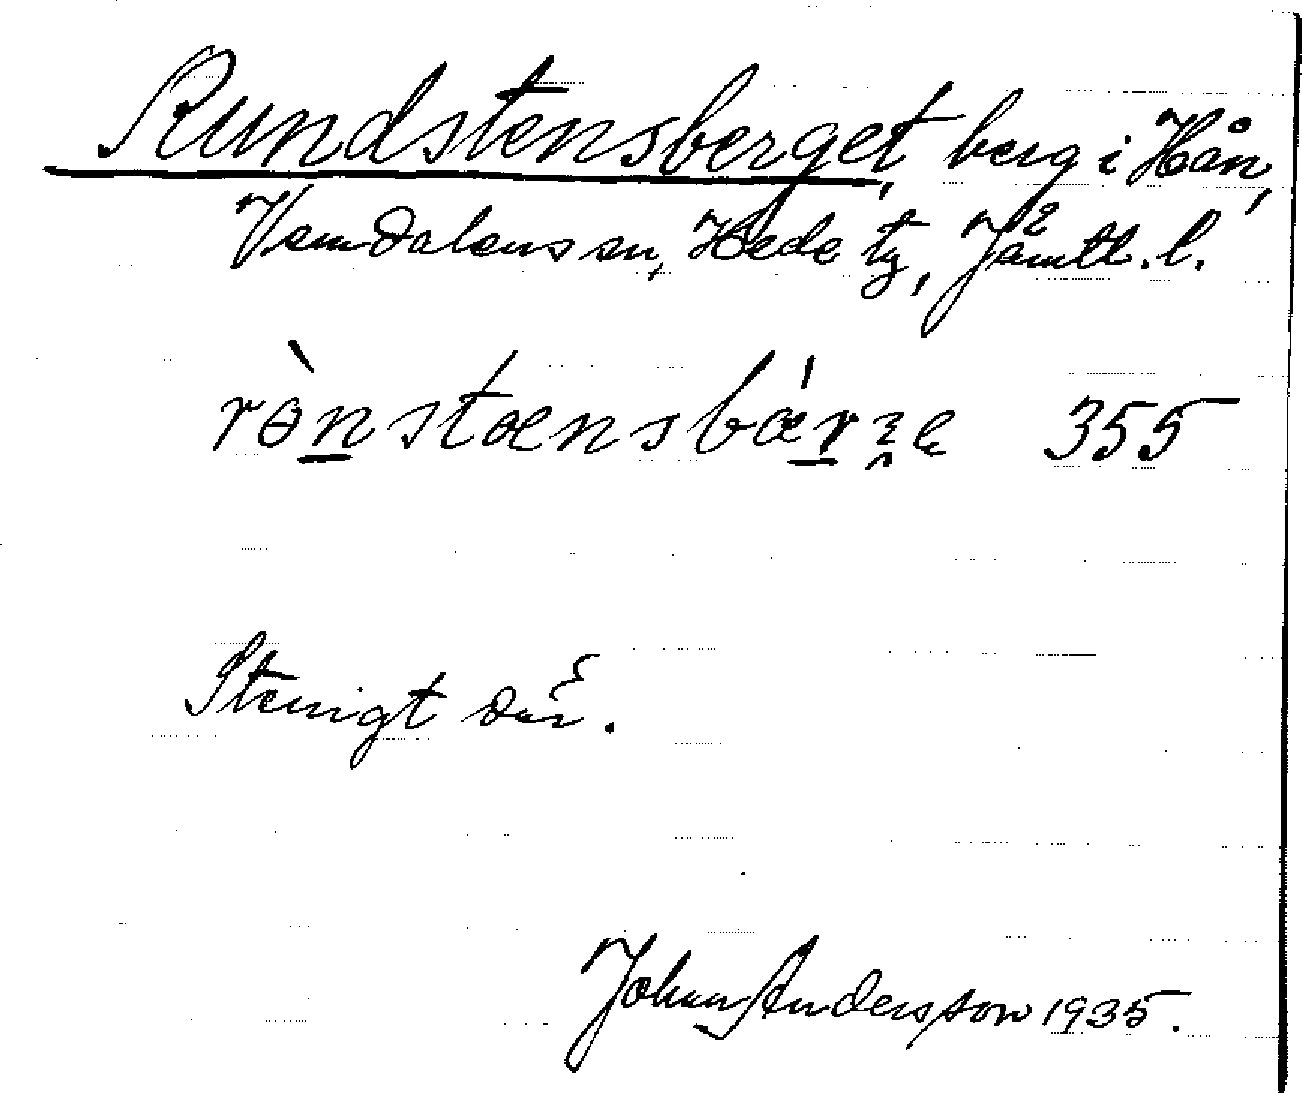 Rundstensberget, berg i Hån,
Vemdalens sn, Hede tg, Jämtl. l.
rɵ̀nstænsbǽrʒe 355
Stenigt där.
Johan Andersson 1935.